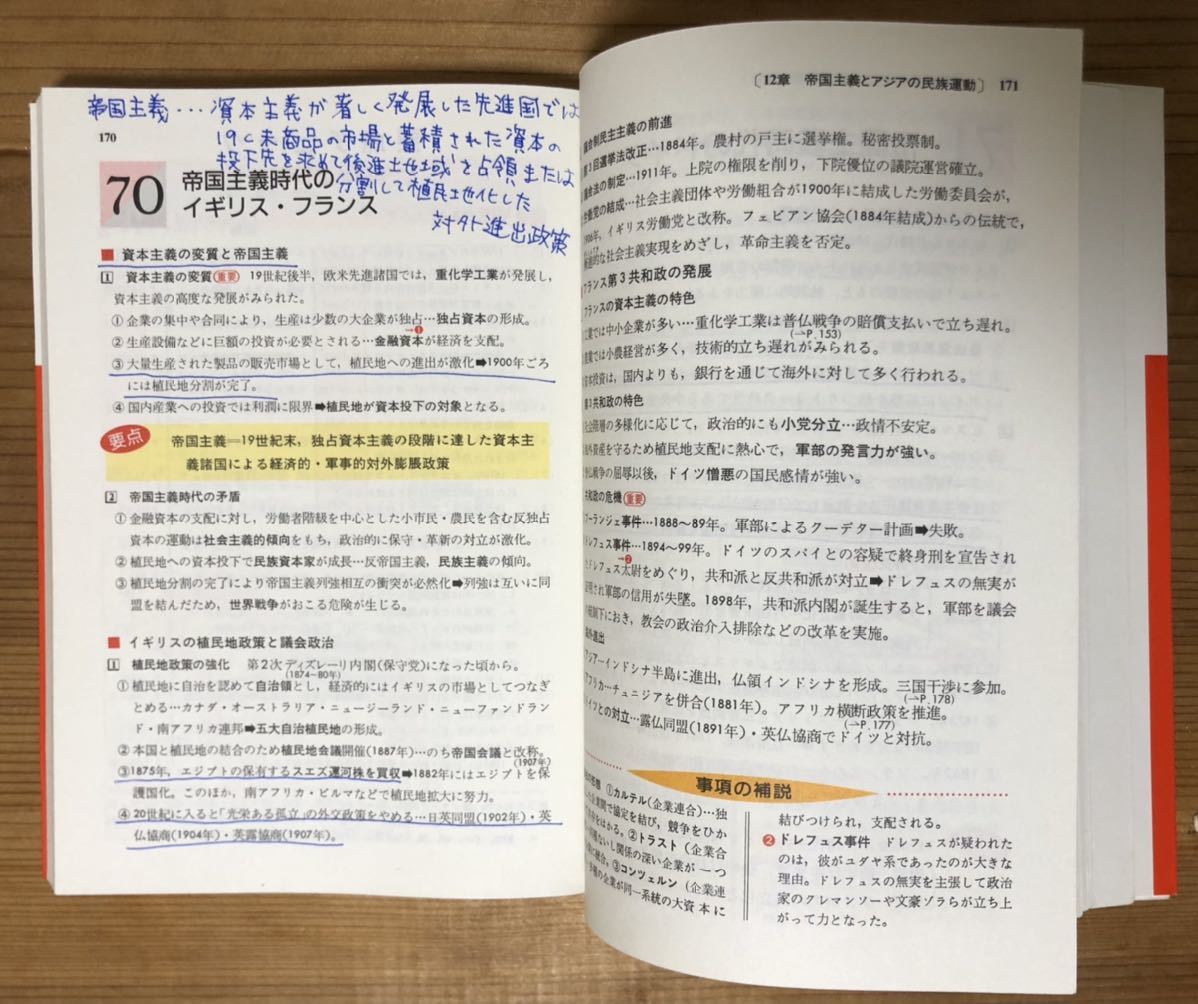 帝国主義...資本主義が著しく発展した先進国では
19C末商品の市場と蓄積された資本の
投下先を求めて後進地域を占領または
分割して植民地化した
対外進出政策
170
70
帝国主義時代の
イギリス・フランス
■ 資本主義の変質と帝国主義
1 資本主義の変質 重要 19世紀後半,欧米先進諸国では,重化学工業が発展し,
資本主義の高度な発展がみられた。
① 企業の集中や合同により,生産は少数の大企業が独占…独占資本の形成。
→❶
② 生産設備などに巨額の投資が必要とされる…金融資本が経済を支配。
③ 大量生産された製品の販売市場として,植民地への進出が激化➡1900年ごろ
には植民地分割が完了。
④ 国内産業への投資では利潤に限界➡植民地が資本投下の対象となる。
要点
帝国主義＝19世紀末,独占資本主義の段階に達した資本主
義諸国による経済的・軍事的対外膨脹政策
2 帝国主義時代の矛盾
① 金融資本の支配に対し,労働者階級を中心とした小市民・農民を含む反独占
資本の運動は社会主義的傾向をもち,政治的に保守・革新の対立が激化。
② 植民地への投資下で民族資本家が成長…反帝国主義,民族主義の傾向。
③ 植民地分割の完了により帝国主義列強相互の衝突が必然化➡列強は互いに同
盟を結んだため,世界戦争がおこる危険が生じる。
■ イギリスの植民地政策と議会政治
1 植民地政策の強化 第2次ディズレーリ内閣(保守党)になった頃から。
(1874～80年)
① 植民地に自治を認めて自治領とし,経済的にはイギリスの市場としてつなぎ
とめる…カナダ・オーストラリア・ニュージーランド・ニューファンドラン
ド・南アフリカ連邦➡五大自治植民地の形成。
② 本国と植民地の結合のため植民地会議開催(1887年)…のち帝国会議と改称。
(1907年)
③ 1875年,エジプトの保有するスエズ運河株を買収➡1882年にはエジプトを保
護国化。このほか,南アフリカ・ビルマなどで植民地拡大に努力。
④ 20世紀に入ると「光栄ある孤立」の外交政策をやめる…日英同盟(1902年)・英
仏協商(1904年)・英露協商(1907年)。
〔12章 帝国主義とアジアの民族運動〕 171
会制民主主義の前進
第3回選挙法改正…1884年。農村の戸主に選挙権。秘密投票制。
会法の制定…1911年。上院の権限を削り,下院優位の議院運営確立。
働党の結成…社会主義団体や労働組合が1900年に結成した労働委員会が,
906年,イギリス労働党と改称。フェビアン協会(1884年結成)からの伝統で,
進的な社会主義実現をめざし,革命主義を否定。
フランス第3共和政の発展
フランスの資本主義の特色
業では中小企業が多い…重化学工業は普仏戦争の賠償支払いで立ち遅れ。
(→P.153)
業では小農経営が多く,技術的立ち遅れがみられる。
本投資は,国内よりも,銀行を通じて海外に対して多く行われる。
第3共和政の特色
会階層の多様化に応じて,政治的にも小党分立…政情不安定。
外資産を守るため植民地支配に熱心で,軍部の発言力が強い。
仏戦争の屈辱以後,ドイツ憎悪の国民感情が強い。
共和政の危機 重要
ブーランジェ事件…1888～89年。軍部によるクーデター計画➡失敗。
ドレフュス事件…1894～99年。ドイツのスパイとの容疑で終身刑を宣告され
→❷
たドレフュス大尉をめぐり,共和派と反共和派が対立➡ドレフュスの無実が
証明され軍部の信用が失墜。1898年,共和派内閣が誕生すると,軍部を議会
の統制下におき,教会の政治介入排除などの改革を実施。
外進出
アジア―インドシナ半島に進出,仏領インドシナを形成。三国干渉に参加。
(→P.178)
アフリカ…チュニジアを併合(1881年)。アフリカ横断政策を推進。
(→P.177)
ドイツとの対立…露仏同盟(1891年)・英仏協商でドイツと対抗。
事項の補説
の形態 ①カルテル(企業連合)…独
した企業間で協定を結び,競争をひか
をはかる。②トラスト(企業合
ないし関係の深い企業が一つ
に統合。③コンツェルン(企業連
の企業が同一系統の大資本に
結びつけられ,支配される。
❷ ドレフュス事件 ドレフュスが疑われた
のは,彼がユダヤ系であったのが大きな
理由。ドレフュスの無実を主張して政治
家のクレマンソーや文豪ゾラらが立ち上
がって力となった。